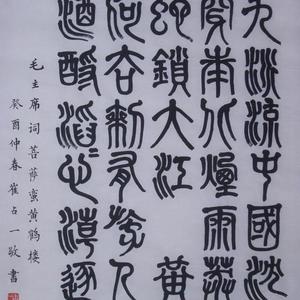 九派流中國沈
穿南北煙雨莽
蛇鎖大江 黄
何去剩有游人
酒酹滔心潮逐
毛主席詞菩薩蛮黄鶴樓
癸酉仲春崔占一敬書